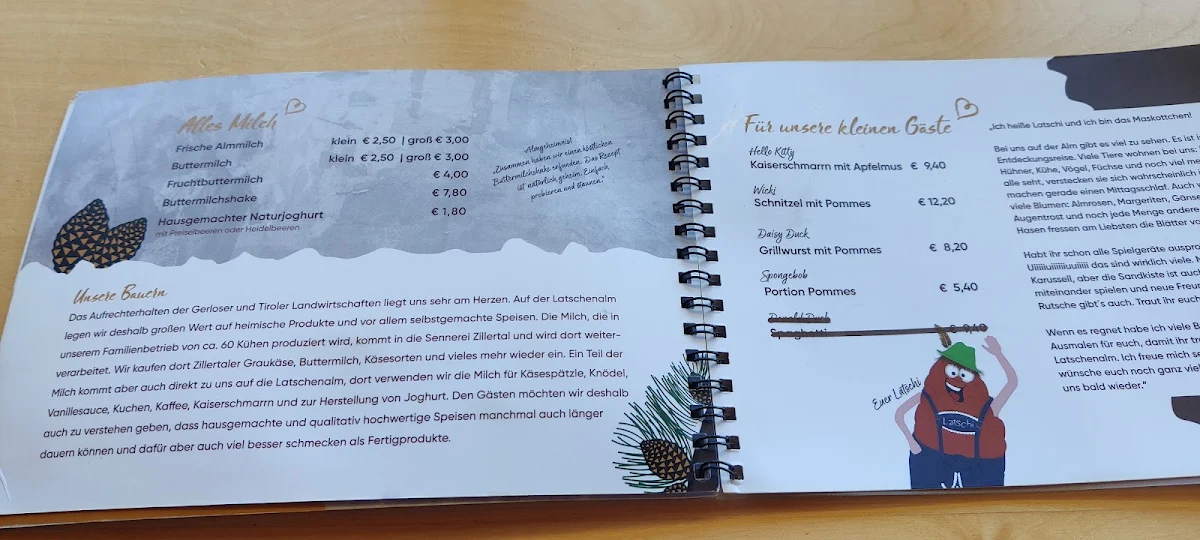 Alles Milch
Frische Almmilch klein € 2,50 | groß € 3,00
Buttermilch klein € 2,50 | groß € 3,00
Fruchtbuttermilch € 4,00
Buttermilchshake € 7,80
Hausgemachter Naturjoghurt € 1,80
mit Preiselbeeren oder Heidelbeeren
Almgeheimnis!
„Zusammen haben wir einen köstlichen
Buttermilchshake erfunden. Das Rezept
ist natürlich geheim. Einfach
probieren und staunen.“
Unsere Bauern
Das Aufrechterhalten der Gerloser und Tiroler Landwirtschaften liegt uns sehr am Herzen. Auf der Latschenalm
legen wir deshalb großen Wert auf heimische Produkte und vor allem selbstgemachte Speisen. Die Milch, die in
unserem Familienbetrieb von ca. 60 Kühen produziert wird, kommt in die Sennerei Zillertal und wird dort weiter-
verarbeitet. Wir kaufen dort Zillertaler Graukäse, Buttermilch, Käsesorten und vieles mehr wieder ein. Ein Teil der
Milch kommt aber auch direkt zu uns auf die Latschenalm, dort verwenden wir die Milch für Käsespätzle, Knödel,
Vanillesauce, Kuchen, Kaffee, Kaiserschmarrn und zur Herstellung von Joghurt. Den Gästen möchten wir deshalb
auch zu verstehen geben, dass hausgemachte und qualitativ hochwertige Speisen manchmal auch länger
dauern können und dafür aber auch viel besser schmecken als Fertigprodukte.
Für unsere kleinen Gäste
Hello Kitty
Kaiserschmarrn mit Apfelmus € 9,40
Wicki
Schnitzel mit Pommes € 12,20
Daisy Duck
Grillwurst mit Pommes € 8,20
Spongebob
Portion Pommes € 5,40
Donald Duck
Spaghetti € 9,40
Euer Latschi
Latschi
„Ich heiße Latschi und ich bin das Maskottchen!
Bei uns auf der Alm gibt es viel zu sehen. Es ist
Entdeckungsreise. Viele Tiere wohnen bei uns.
Hühner, Kühe, Vögel, Füchse und noch viel
alle seht, verstecken sie sich wahrscheinlich
machen gerade einen Mittagsschlaf. Auch
viele Blumen: Almrosen, Margeriten,
Augentrost und noch jede Menge andere
Hasen fressen am Liebsten die Blätter
Habt ihr schon alle Spielgeräte
Uiiiiiuiiiiiiuuiiiii das sind wirklich viele.
Karussell, aber die Sandkiste ist auch
miteinander spielen und neue
Rutsche gibt´s auch. Traut ihr euch
Wenn es regnet habe ich viele
Ausmalen für euch, damit ihr
Latschenalm. Ich freue mich
wünsche euch noch ganz
uns bald wieder."